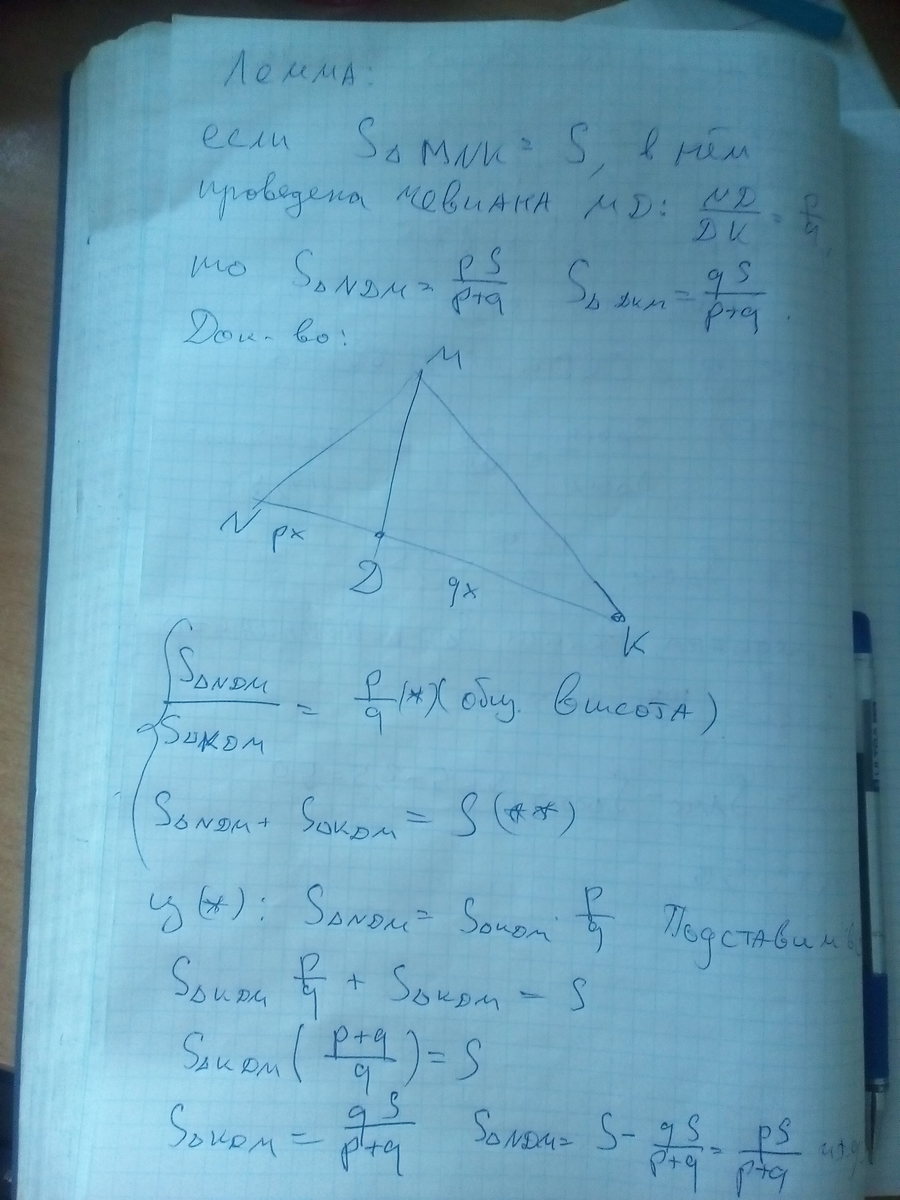 Лемма:
если S△MNK = S, в нём
проведена чевиана MD: ND/DK = p/q,
то S△NDM = pS/(p+q) S△DKM = qS/(p+q).
Док-во:
M
N
px
D
qx
K
S△NDM/S△KDM = p/q (*)(общ. высота)
S△NDM + S△KDM = S (**)
из (*): S△NDM = S△KDM · p/q Подставим в
S△KDM p/q + S△KDM = S
S△KDM ((p+q)/q) = S
S△KDM = qS/(p+q) S△NDM = S - qS/(p+q) = pS/(p+q)